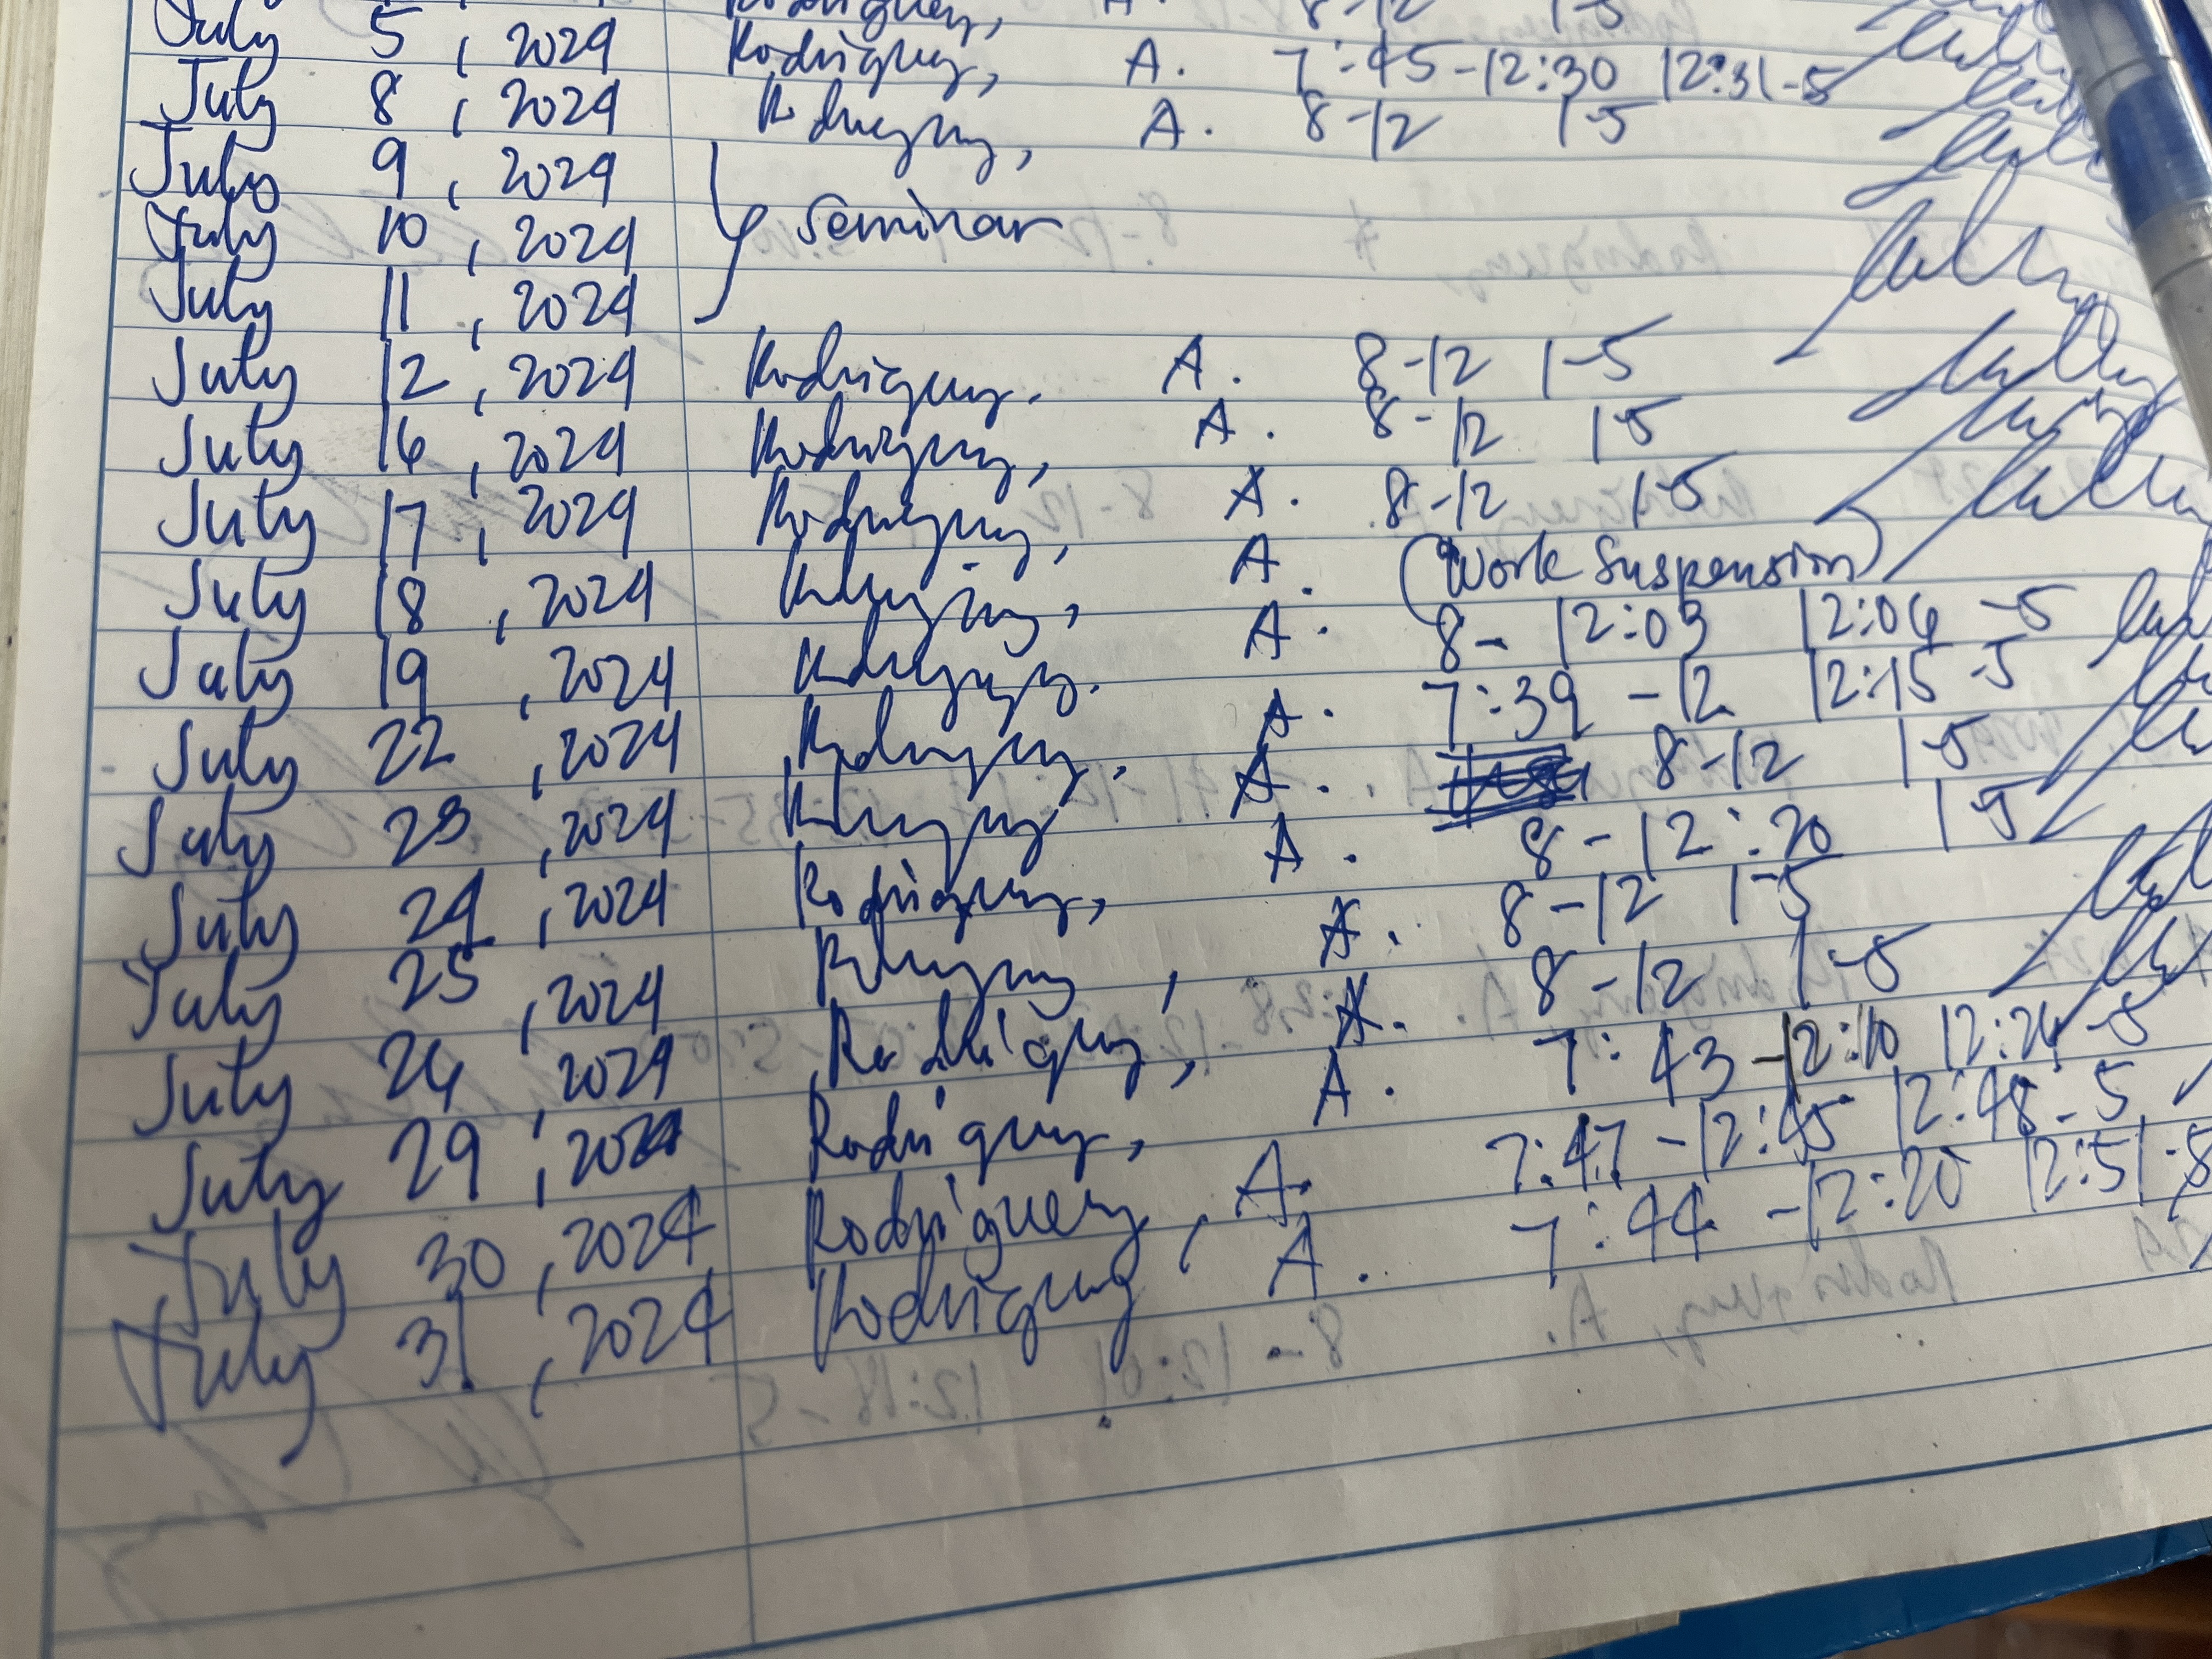 Rodriguez, A. 8-12 1-5
July 5, 2024 Rodriguez, A. 7:45-12:30 12:31-5
July 8, 2024 Rodriguez, A. 8-12 1-5
July 9, 2024
July 10, 2024 Seminar
July 11, 2024
July 12, 2024 Rodriguez, A. 8-12 1-5
July 16, 2024 Rodriguez, A. 8-12 1-5
July 17, 2024 Rodriguez, A. 8-12 1-5
July 18, 2024 Rodriguez, A. (Work Suspension)
July 19, 2024 Rodriguez, A. 8-12:03 12:06-5
July 22, 2024 Rodriguez, A. 7:39-12 12:15-5
July 23, 2024 Rodriguez, A. 8-12 1-5
July 24, 2024 Rodriguez, A. 8-12:20 1-5
July 25, 2024 Rodriguez, A. 8-12 1-5
July 26, 2024 Rodriguez, A. 8-12 1-5
July 29, 2024 Rodriguez, A. 7:43-12:10 12:26-5
July 30, 2024 Rodriguez, A. 7:47-12:45 12:48-5
July 31, 2024 Rodriguez A. 7:44-12:20 12:51-5